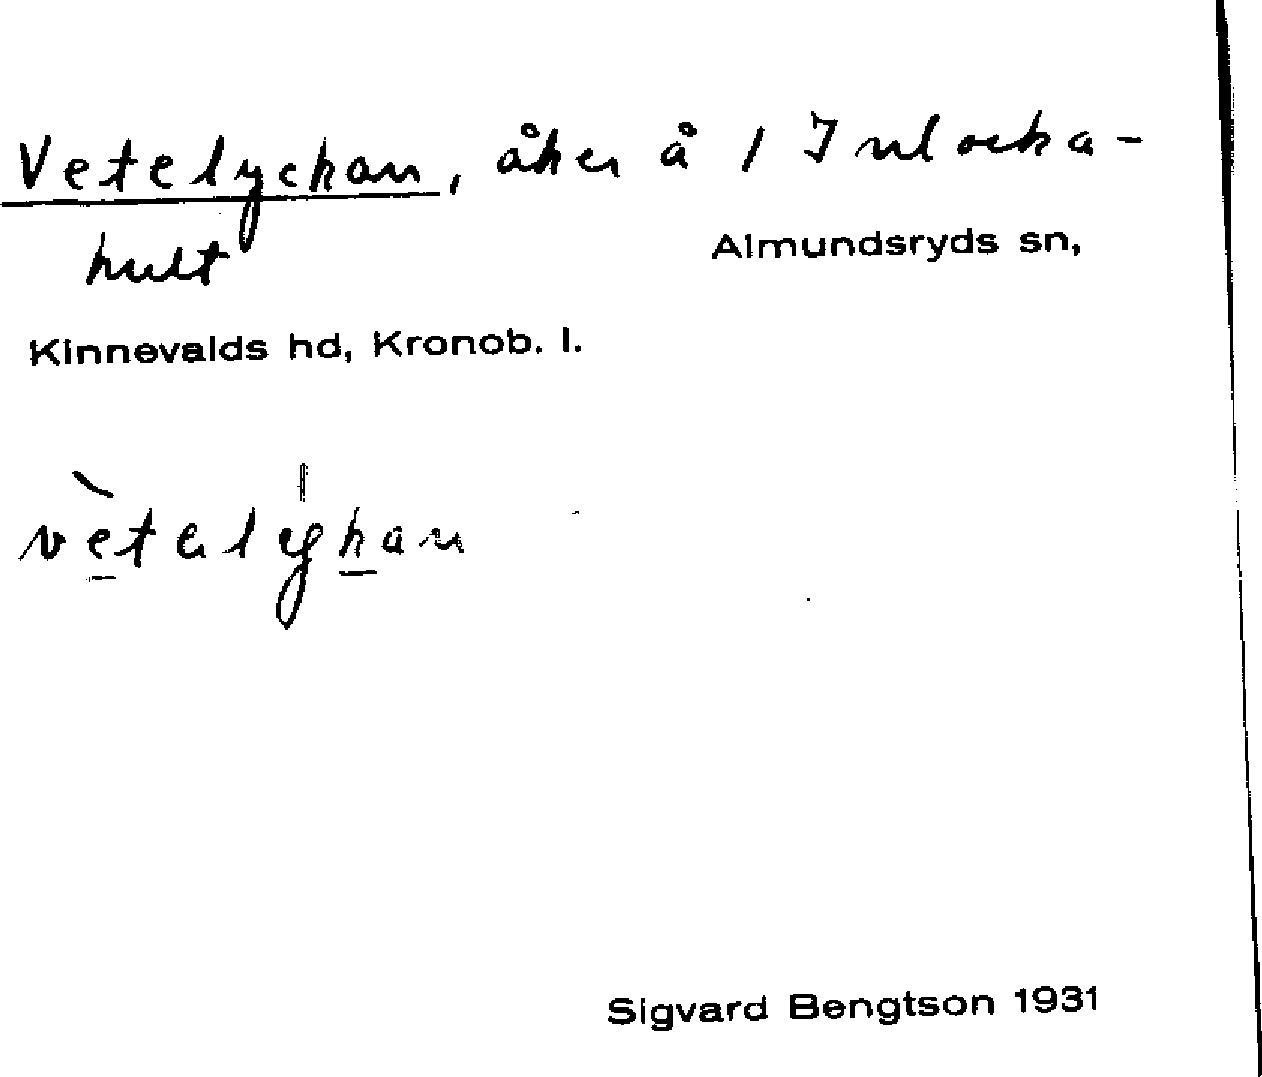 Vetelyckan, åker å / Inlocka-
hult
Almundsryds sn,
Kinnevalds hd, Kronob. l.
Sigvard Bengtson 1931